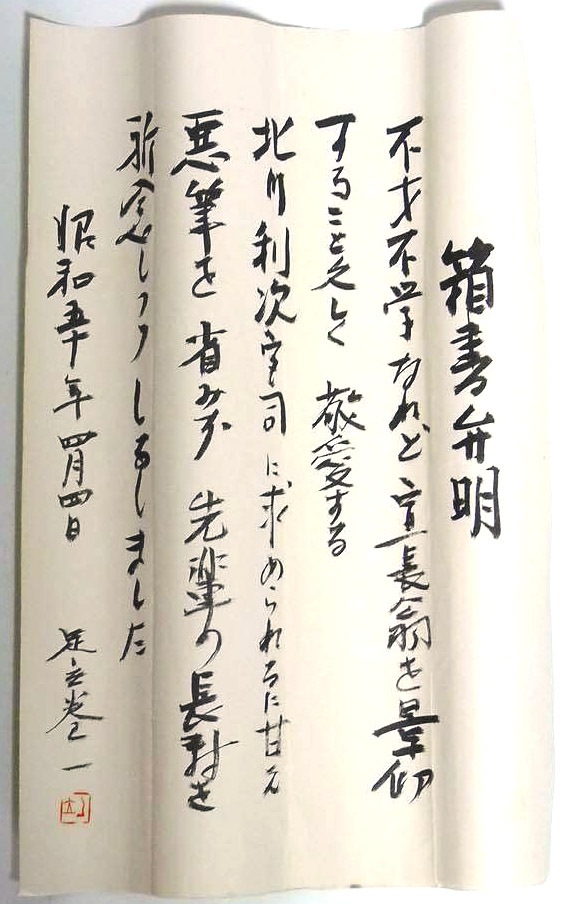 箱書弁明
不才不学なれど宣長翁を景仰
すること久しく 敬愛する
北川利次宮司に求められるに甘え
悪筆を省みず 先輩の長寿を
祈念しつつしるしました
昭和五十年四月四日 足立巻一